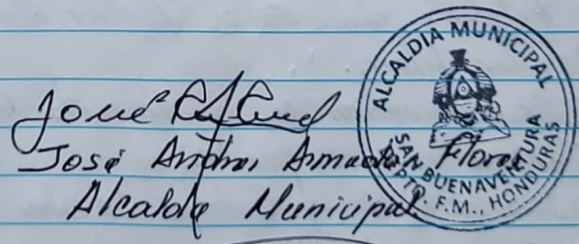 José
José Andres Armando Flores
Alcalde Municipal
ALCALDIA MUNICIPAL
SAN BUENAVENTURA
DEPTO. F.M., HONDURAS